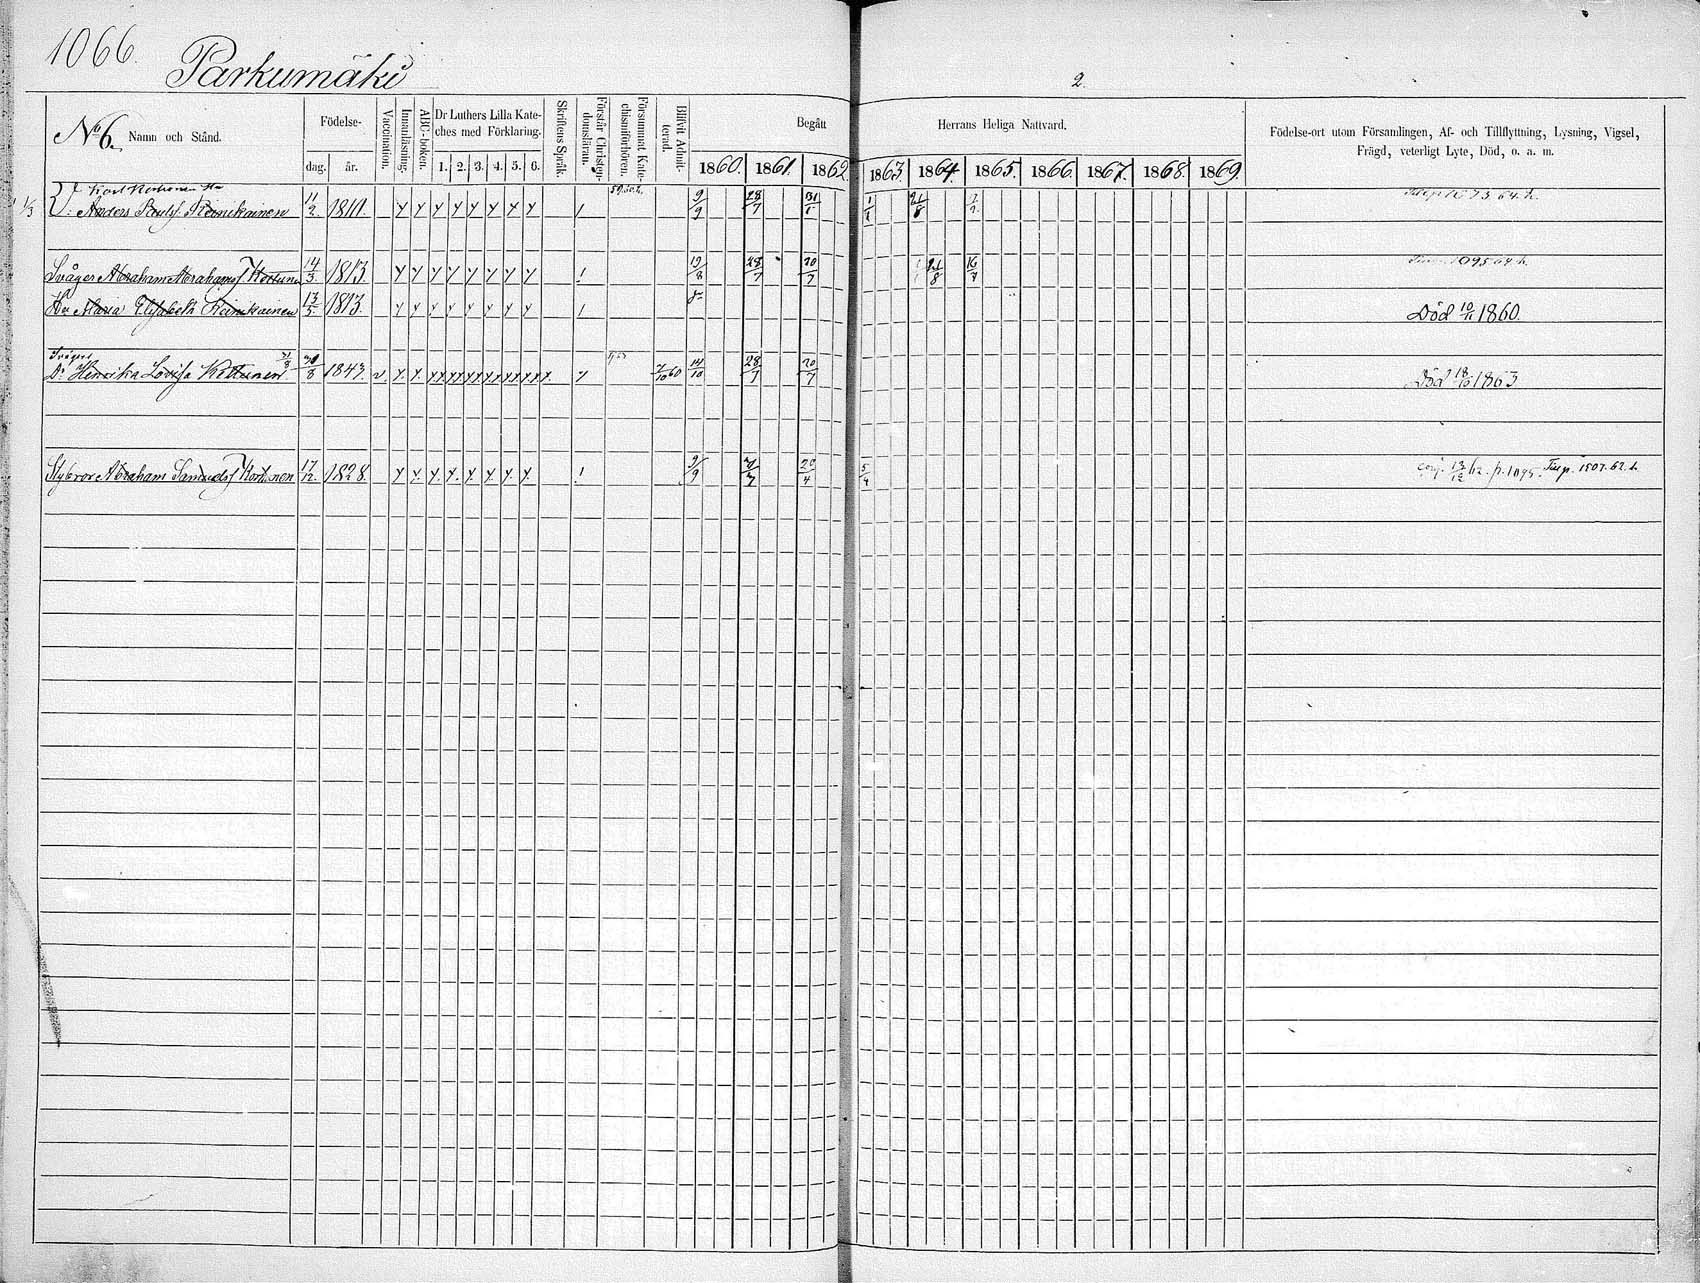 1066.
Parkumäki
2.
No 6. Namn och Stånd.
Födelse-
dag. år.
Vaccination.
Innanläsning.
ABC-boken.
Dr Luthers Lilla Kate-
ches med Förklaring.
1. 2. 3. 4. 5. 6.
Skriftens Språk.
Förstår Christen-
domsläran.
Försummat Kate-
chismiförhören.
Blifvit Admit-
terad.
Begått Herrans Heliga Nattvard.
1860. 1861. 1862. 1863 1864. 1865. 1866. 1867. 1868. 1869
Födelse-ort utom Församlingen, Af- och Tillflyttning, Lysning, Vigsel,
Frägd, veterligt Lyte, Död, o. a. m.
1/3 Anders Paulss. Reinikainen 11/2 1811. y y y y y y y y / 9/9 28/7
Svåger Abraham Abrahamss. 14/3 1813. y y y y y y y y / 19/8 28/7 20/7 21/8 16/7 1095 64. h.
Hu Maria Elisabeth Reinikainen 13/5 1813. y y y y y y y y / Död 10/11 1860.
Svågers
Dr Henrika Lovisa Kettunen 1843. v. 7/10 60 14/10 28/7 20/7 Död 18/10 1863
Styvbror Abraham Samuelss. 17/12. 1828. y y y y y y y y / 9/9 20/4 5/4 conj. 13/12 62. p. 1095.